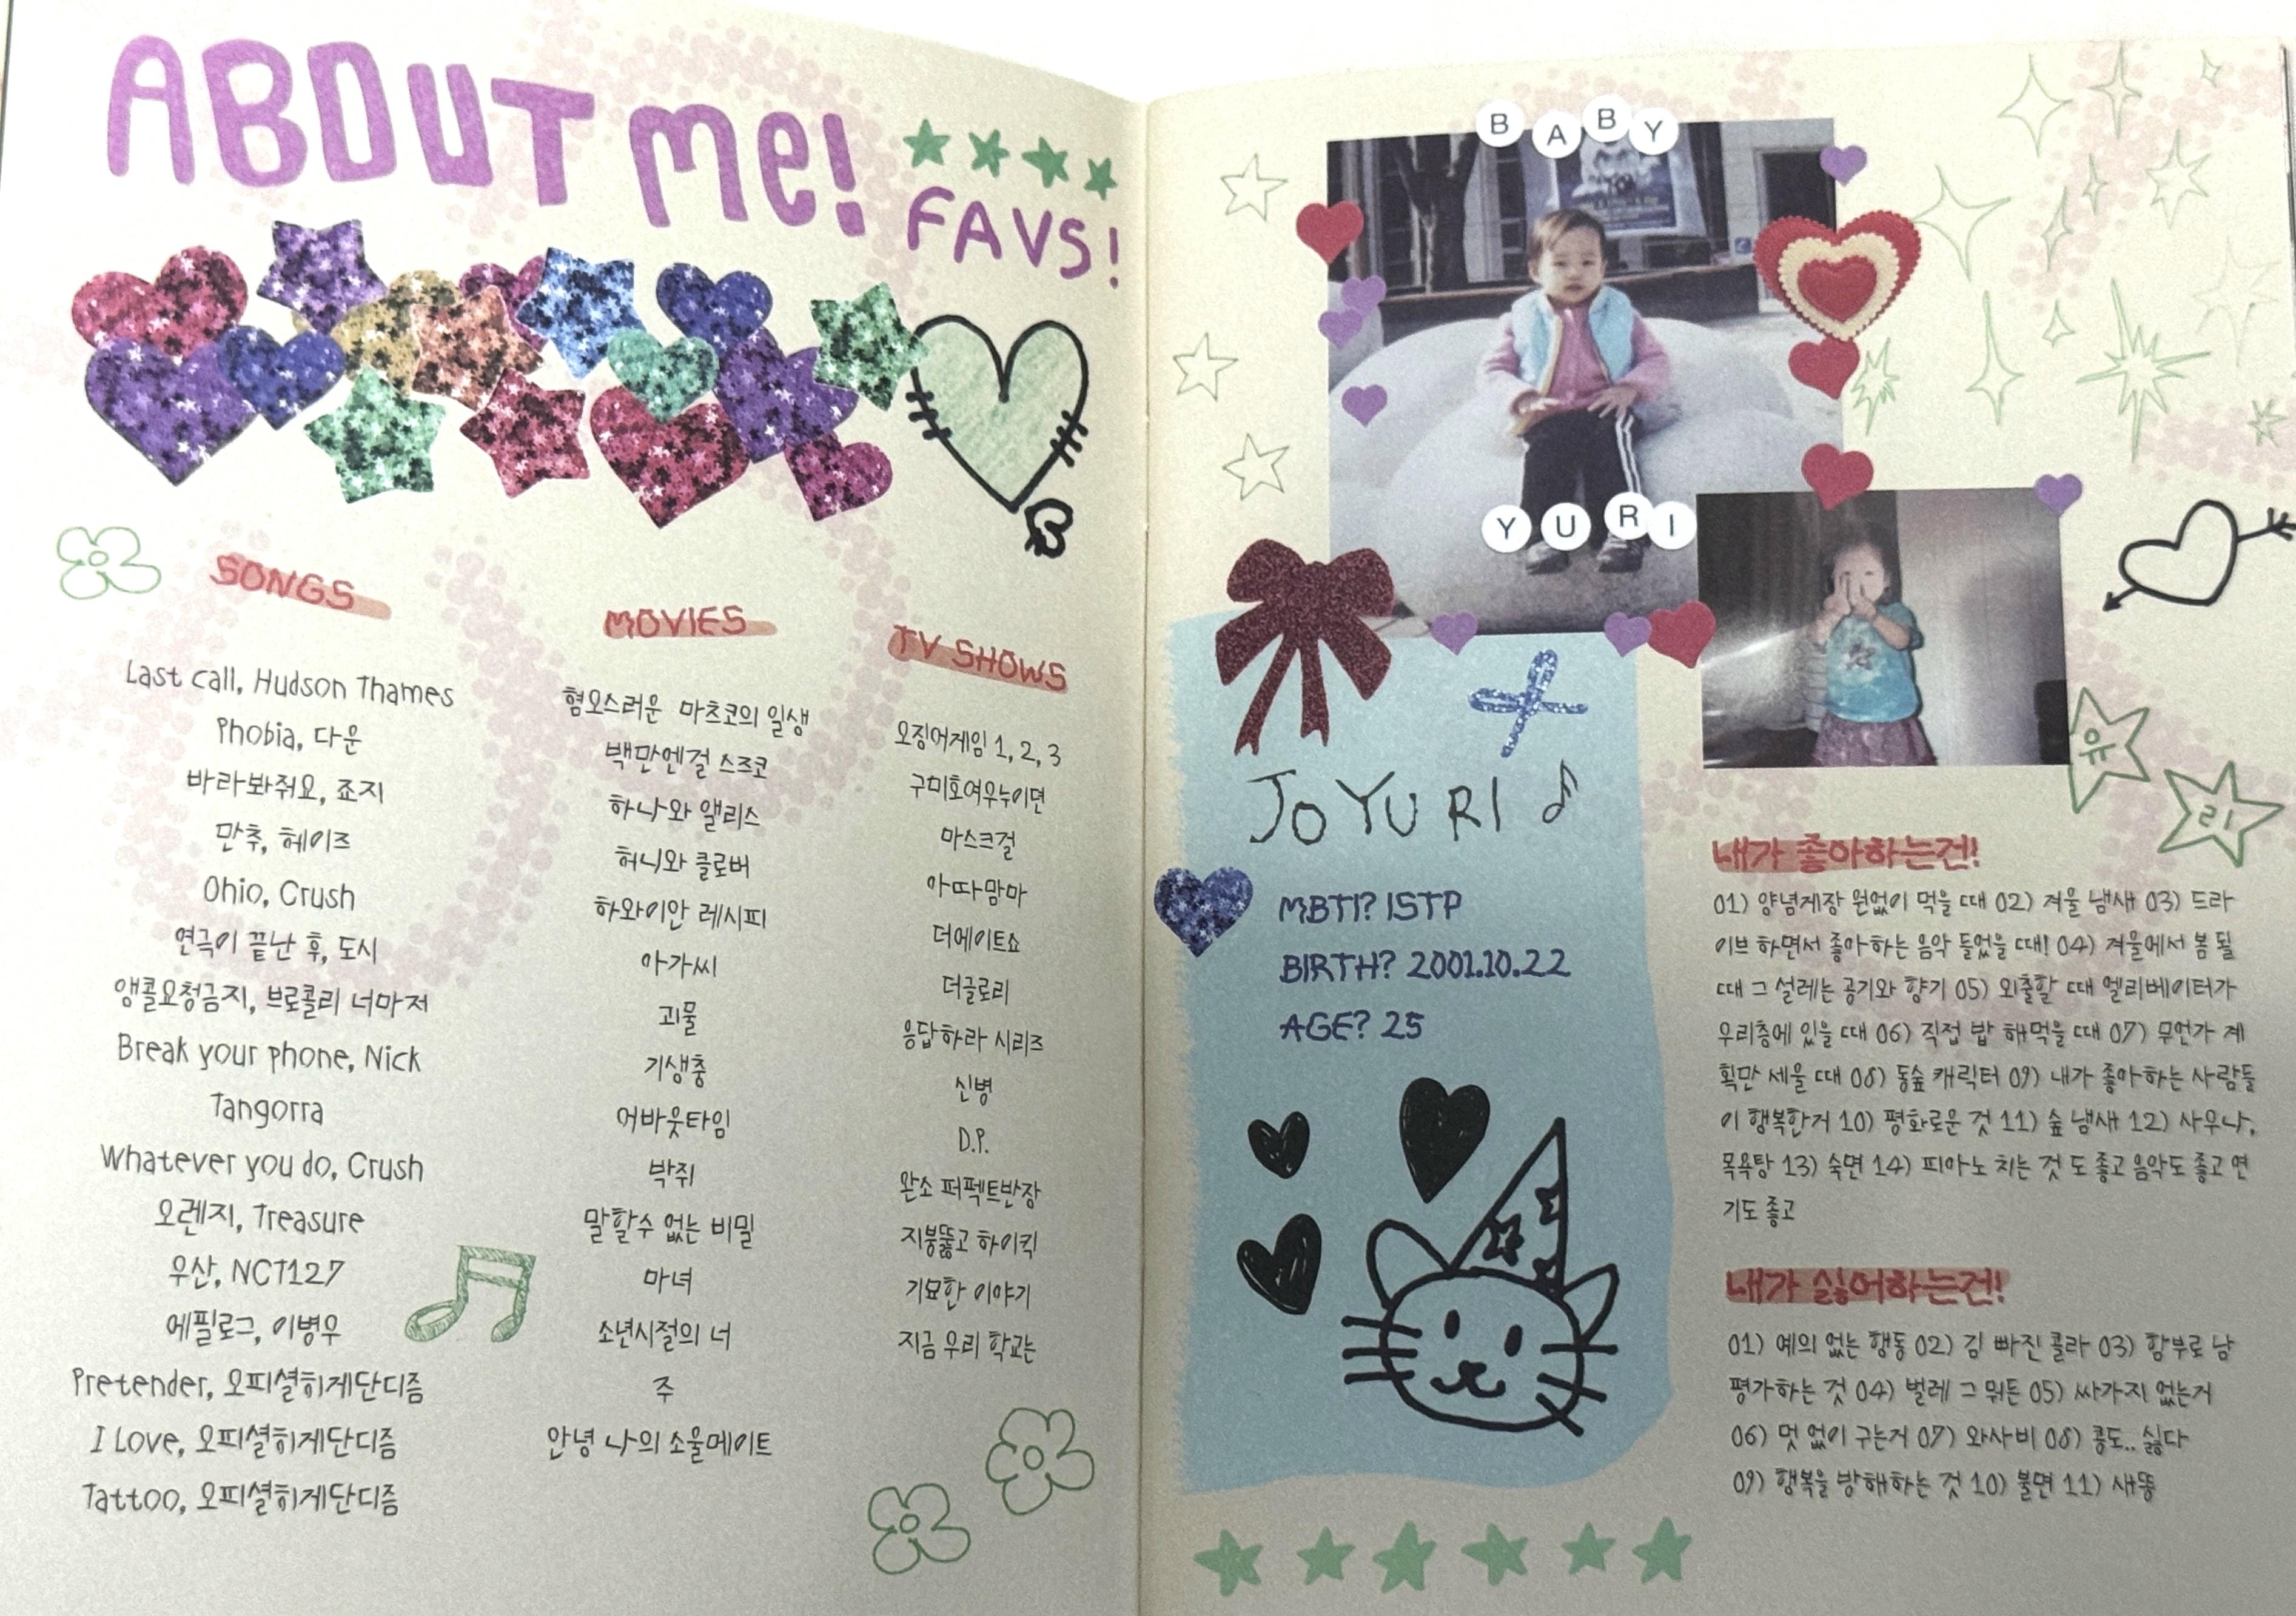 ABOUT ME!
FAVS!
SONGS
Last call, Hudson Thames
Phobia, 다운
바라봐줘요, 죠지
만추, 헤이즈
Ohio, Crush
연극이 끝난 후, 도시
앵콜요청금지, 브로콜리 너마저
Break your phone, Nick
Tangorra
Whatever you do, Crush
오렌지, Treasure
우산, NCT127
에필로그, 이병우
Pretender, 오피셜히게단디즘
I Love, 오피셜히게단디즘
Tattoo, 오피셜히게단디즘
MOVIES
혐오스러운 마츠코의 일생
백만엔걸 스즈코
하나와 앨리스
허니와 클로버
하와이안 레시피
아가씨
괴물
기생충
어바웃타임
박쥐
말할수 없는 비밀
마녀
소년시절의 너
주
안녕 나의 소울메이트
TV SHOWS
오징어게임 1, 2, 3
구미호여우누이뎐
마스크걸
아따맘마
더에이트쇼
더글로리
응답하라 시리즈
신병
D.P.
완소 퍼펙트반장
지붕뚫고 하이킥
기묘한 이야기
지금 우리 학교는
BABY
YURI
JO YURI
MBTI? ISTP
BIRTH? 2001.10.22
AGE? 25
유
리
내가 좋아하는건!
01) 양념게장 원없이 먹을 때 02) 겨울 냄새 03) 드라
이브 하면서 좋아하는 음악 들었을 때! 04) 겨울에서 봄 될
때 그 설레는 공기와 향기 05) 외출할 때 엘리베이터가
우리층에 있을 때 06) 직접 밥 해먹을 때 07) 무언가 계
획만 세울 때 08) 동숲 캐릭터 09) 내가 좋아하는 사람들
이 행복한거 10) 평화로운 것 11) 숲 냄새 12) 사우나,
목욕탕 13) 숙면 14) 피아노 치는 것 도 좋고 음악도 좋고 연
기도 좋고
내가 싫어하는건!
01) 예의 없는 행동 02) 김 빠진 콜라 03) 함부로 남
평가하는 것 04) 벌레 그 뭐든 05) 싸가지 없는거
06) 멋 없이 구는거 07) 와사비 08) 콩도.. 싫다
09) 행복을 방해하는 것 10) 불면 11) 새똥